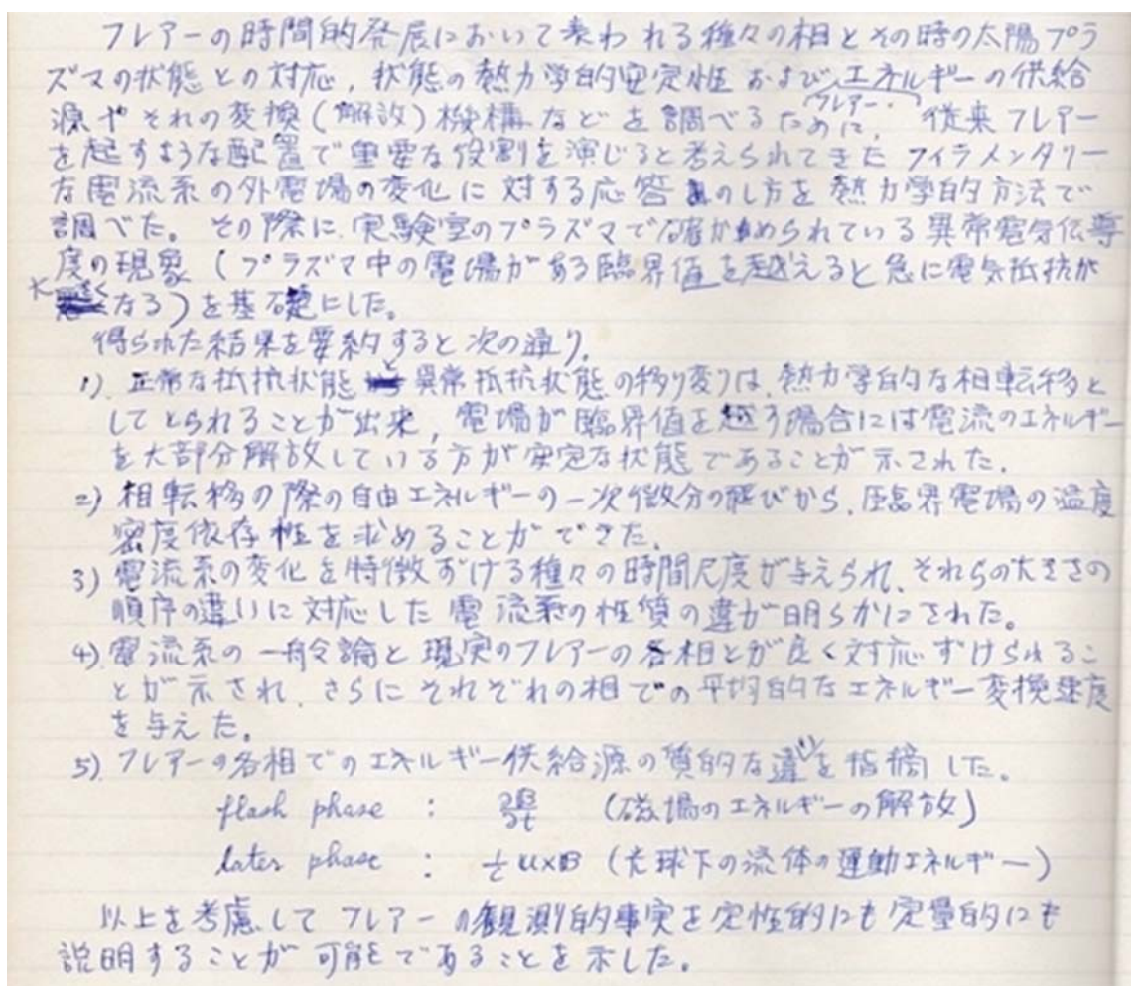 フレアーの時間的発展において表われる種々の相とその時の太陽プラ
ズマの状態との対応, 状態の熱力学的安定性 および エネルギーの供給
源や それの変換 (解放) 機構 などを調べるために, フレアー 従来 フレアー
を起すような配置で重要な役割を演じると考えられてきた フィラメンタリー
な電流系の外電場の変化に対する応答のし方を 熱力学的方法で
調べた。その際に、実験室のプラズマで確かめられている異常電気伝導
度の現象 (プラズマ中の電場がある臨界値を越えると急に電気抵抗が
大きくなる) を基礎にした。
得られた結果を要約すると次の通り.
1) 正常な抵抗状態と異常抵抗状態の移り変りは、熱力学的な相転移と
してとられることが出来, 電場が臨界値を越す場合には電流のエネルギー
を大部分解放している方が安定な状態であることが示された.
2) 相転移の際の自由エネルギーの一次微分の飛びから, 臨界電場の温度
密度依存性を求めることができた.
3) 電流系の変化を特徴ずける種々の時間尺度が与えられ、それらの大きさの
順序の違いに対応した 電流系の性質の違が明らかにされた。
4) 電流系の一般論と現実のフレアーの各相とが良く対応ずけられるこ
とが示され、さらにそれぞれの相での平均的なエネルギー変換速度
を与えた。
5) フレアーの各相でのエネルギー供給源の質的な違いを指摘した。
flash phase : ∂B/∂t (磁場のエネルギーの解放)
later phase : 1/c u×B (光球下の流体の運動エネルギー)
以上を考慮してフレアーの観測的事実を定性的にも定量的にも
説明することが可能であることを示した。